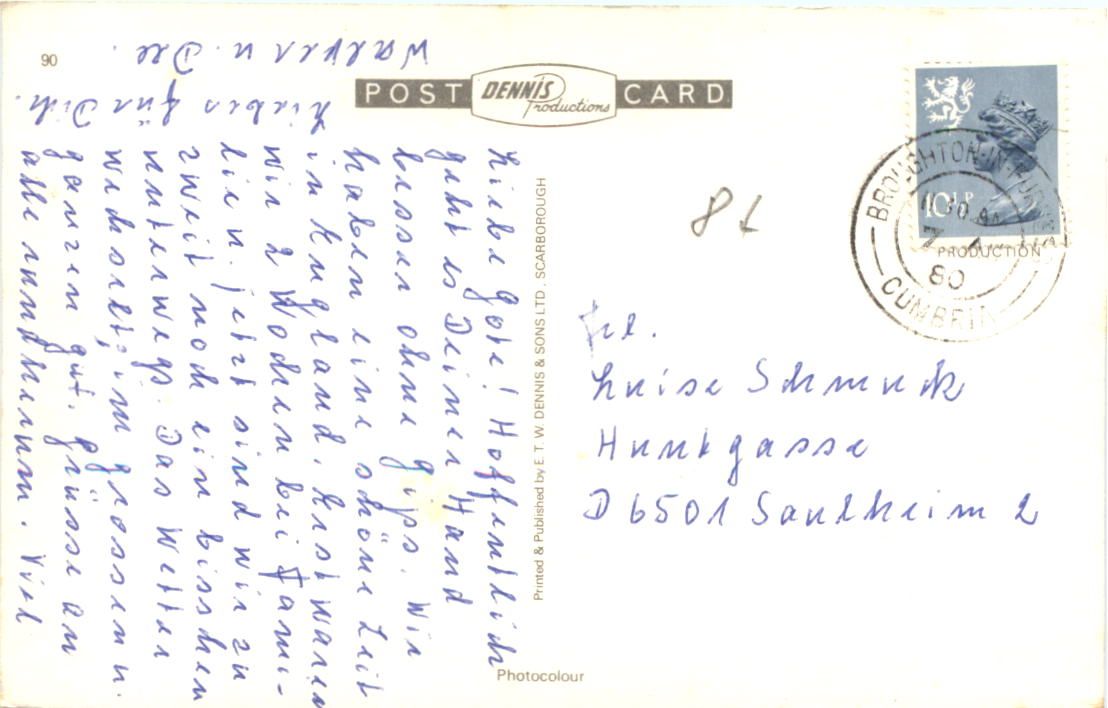 90
POST DENNIS Productions CARD
10½P
BROUGHTON-IN-FURNESS
CUMBRIA
80
PRODUCTION
Liebe Gote! Hoffentlich
geht es Deiner Hand
besser ohne Gips. Wir
haben eine schöne Zeit
in England. Erst waren
wir 2 Wochen bei Fami-
lien. Jetzt sind wir zu
zweit noch ein bisschen
unterwegs. Das Wetter
wechselt, im grossen u.
ganzen gut. Grüsse an
alle rundherum. Viel
Liebes für Dich.
u. Dee.
Printed & Published by E. T. W. DENNIS & SONS LTD., SCARBOROUGH
Frl.
Luise Schmuck
Huntgasse
D 6501 Saulheim 2
Photocolour